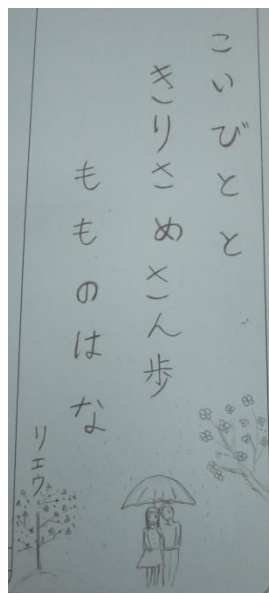 こいびとと
きりさめさん歩
もものはな
リエウ